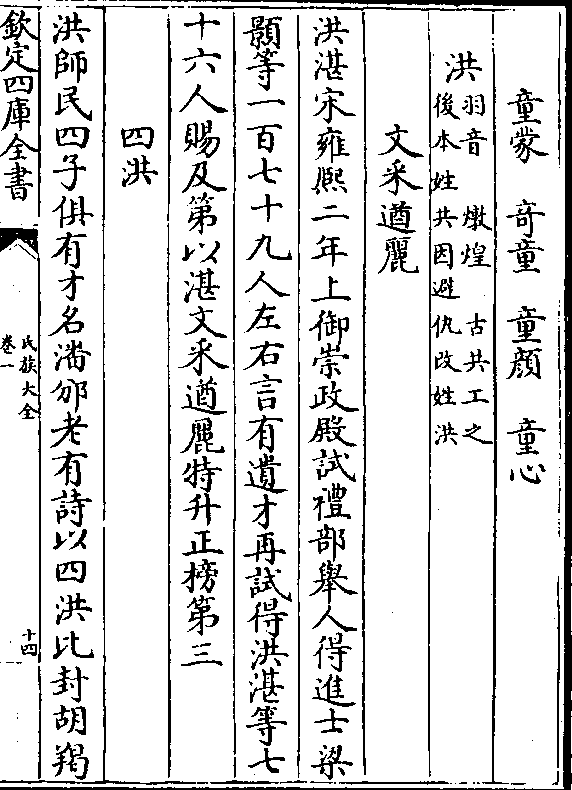 童蒙　竒童　童顔　童心
洪羽音　燉煌　古共工之
後本姓共因避仇改姓洪
文采遒麗
洪湛宋雍熈二年上御崇政殿試禮部舉人得進士梁
顥等一百七十九人左右言有遺才再試得洪湛等七
十六人賜及第以湛文采遒麗特升正榜第三
四洪
洪師民四子俱有才名潘邠老有詩以四洪比封胡羯
欽定四庫全書
氏族大全
卷一
十四